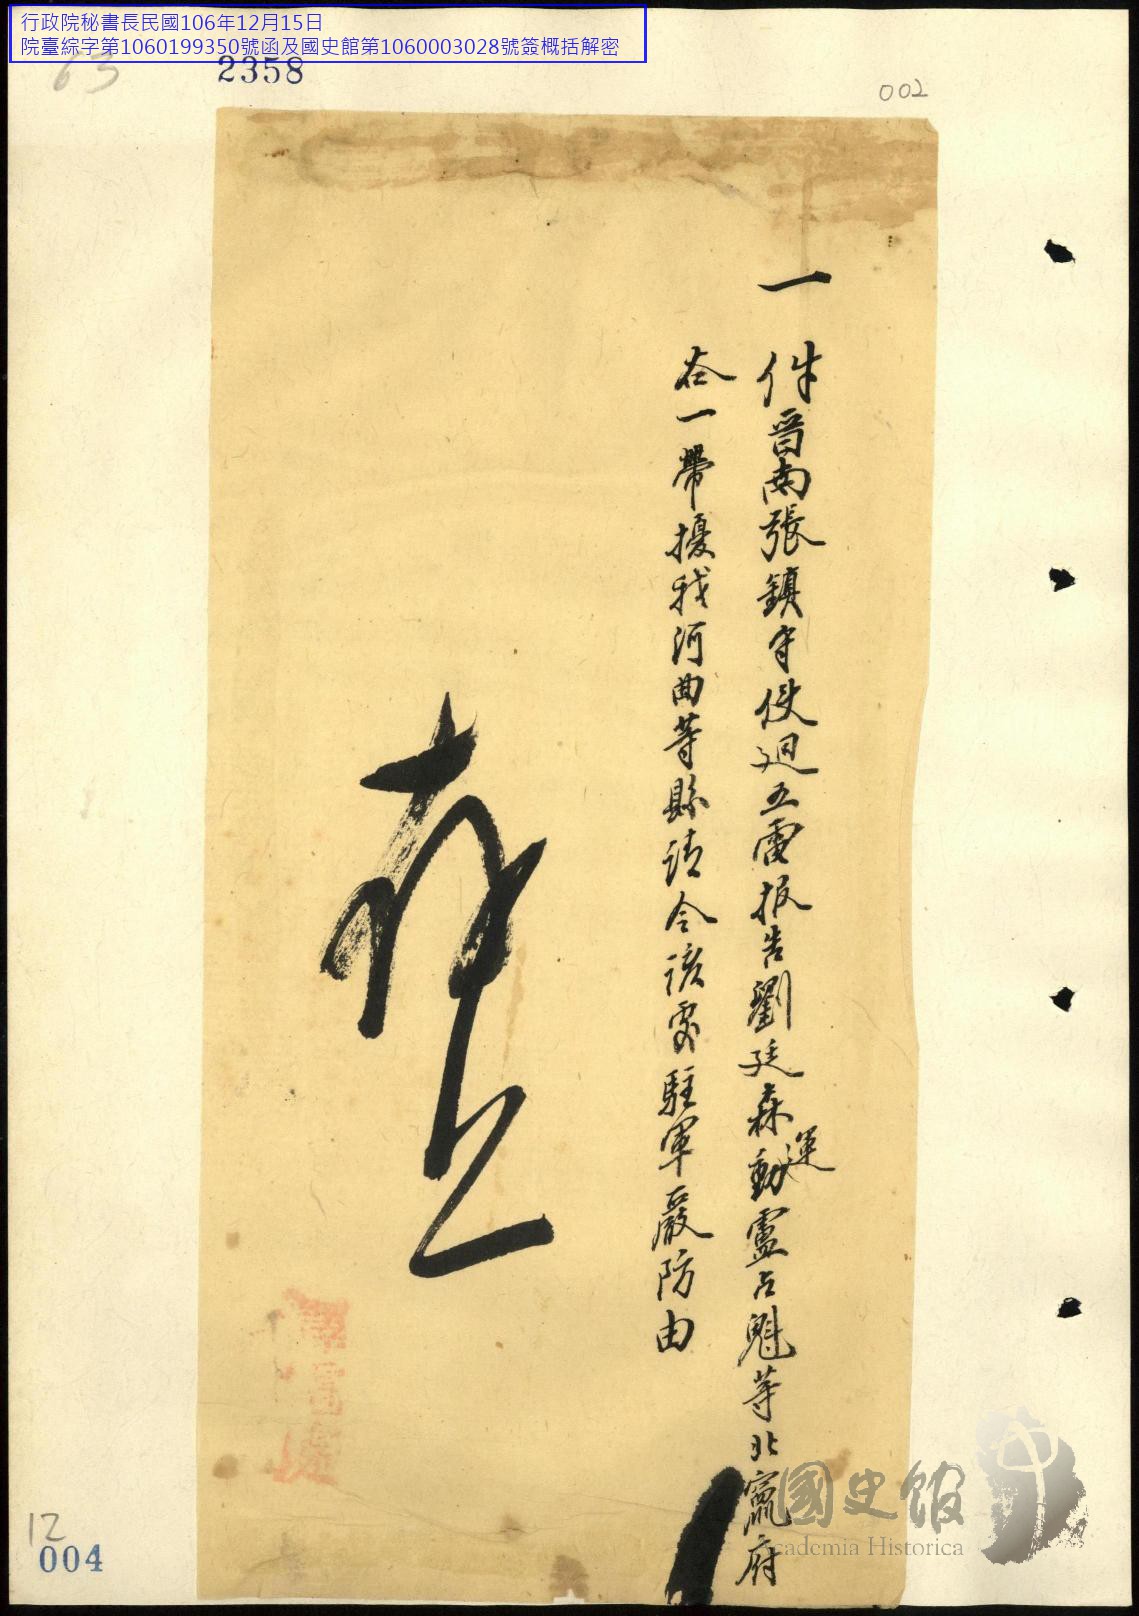 行政院秘書長民國106年12月15日
院臺綜字第1060199350號函及國史館第1060003028號簽概括解密
63
2358
002
一件晉南張鎮守使迴五電報告劉廷森運動盧占魁等北竄府
谷一帶擾我河曲等縣請令該處駐軍嚴防由
存
國史館
Academia Historica
12
004